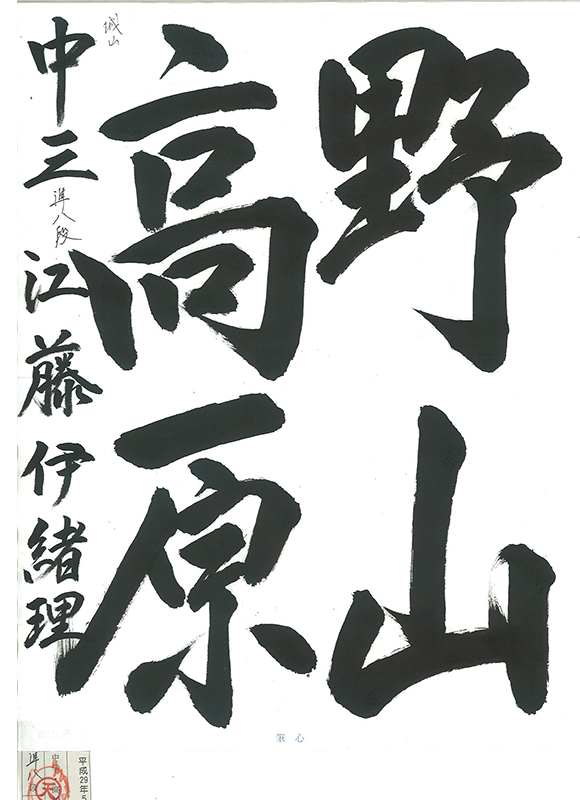 野山
高原
城山
中三 準八段 江藤伊緒理
筆心
平成29年5
準八
天